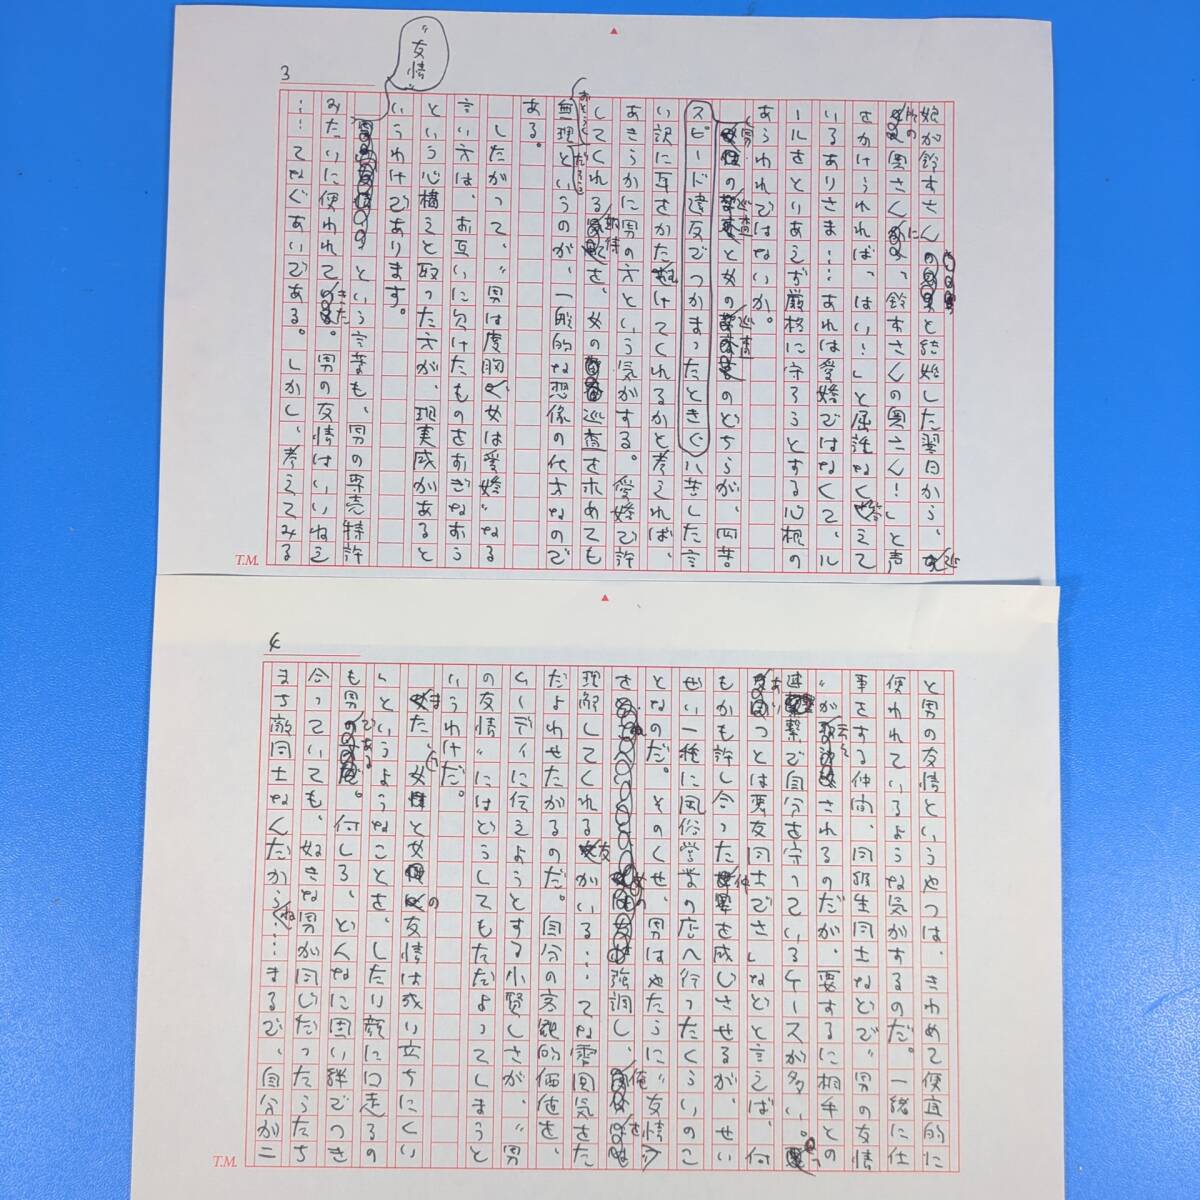 3
"友情"
娘が鈴木さんのと結婚した翌日から、
奥さんに、「鈴木さんの奥さん!」と声
をかけられれば、「はい!」と屈託なく答えて
いるありさま……あれは愛嬌ではなくて、ル
ールをとりあえず厳格に守ろうとする心根の
あらわれではないか。
男の巡査と女の巡査のどちらが、四苦
スピード違反でつかまったとき、八苦した言
い訳に耳をかたむけてくれるかと考えれば、
あきらかに男の方という気がする。愛嬌で許
してくれる期待を、女の巡査に求めても
無理というのが、一般的な想像の仕方なので
ある。
したがって、"男は度胸、女は愛嬌"なる
言い方は、お互いに欠けたものをおぎなおう
という心構えと取った方が、現実感があると
いうわけであります。
という言葉も、男の専売特許
みたいに使われてきた。男の友情はいいねえ
……てなぐあいである。しかし、考えてみる
T.M.
4
と男の友情というやつは、きわめて便宜的に
使われているような気がするのだ。一緒に仕
事をする仲間、同級生同士などで"男の友情
"が云々されるのだが、要するに相手との
連繋で自分を守っているケースが多い。
あいつとは悪友同士でさ」などと言えば、何
もかも許し合った仲を感じさせるが、せい
ぜい一緒に風俗営業の店へ行ったくらいのこ
となのだ。そのくせ、男はやたらに"友情"
を強調し、俺を
理解してくれる友がいる……てな雰囲気をた
だよわせたがるのだ。自分の客観的価値を、
レーディに伝えようとする小賢しさが、"男
の友情"にはどうしてもただよってしまうと
いうわけだ。
また、女と女の友情は成り立ちにくい
、というようなことを、したり顔に口走るの
も男である。何しろ、どんなに固い絆でつき
合っていても、好きな男が同じだったらたち
まち敵同士なんだからね……まるで、自分が二
T.M.